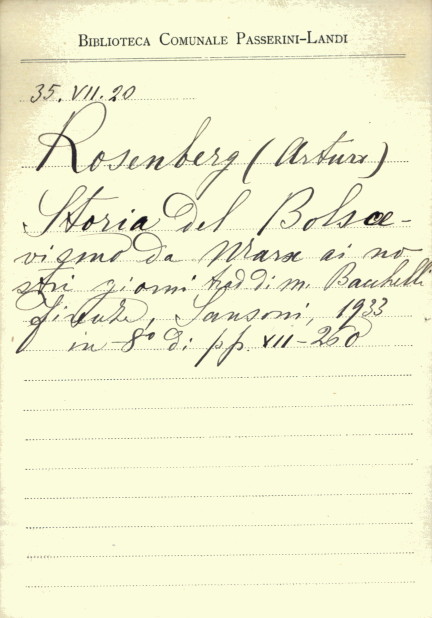 BIBLIOTECA COMUNALE PASSERINI-LANDI
35. VII. 20
Rosenberg (Artur)
Storia del Bolsce-
vigmo da Marx ai no-
stri giorni trad di M. Bacchelli
Firenze, Sansoni, 1933
in-8º di pp. VII-260